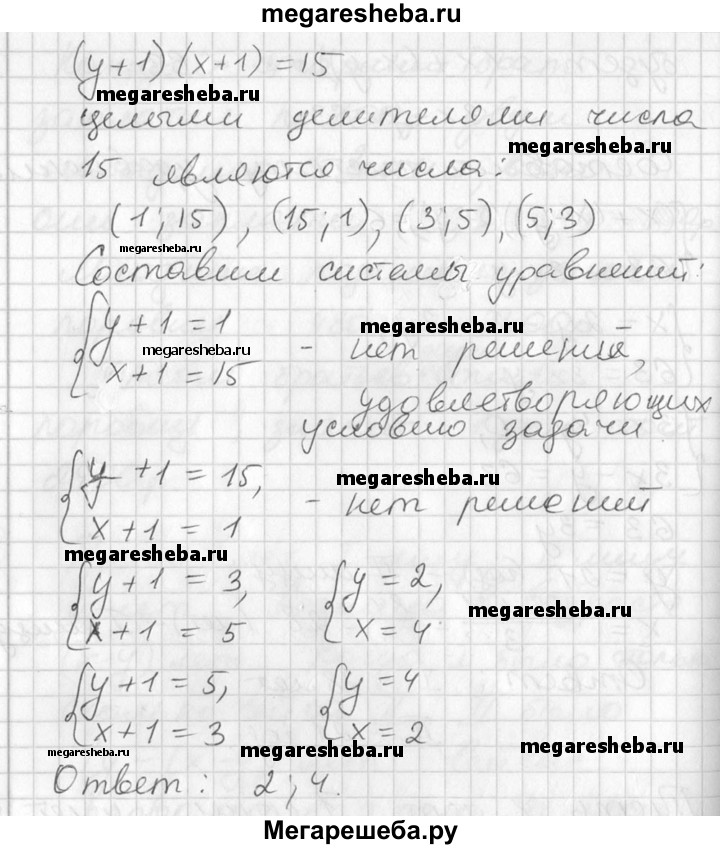 megaresheba.ru
(y+1)(x+1)=15
megaresheba.ru
целыми делителями числа
megaresheba.ru
15 являются числа:
(1;15), (15;1), (3;5), (5;3)
megaresheba.ru
Составим системы уравнений:
y+1=1
megaresheba.ru
megaresheba.ru
x+1=15 - нет решений,
удовлетворяющих
условию задачи
y+1=15,
megaresheba.ru
- нет решений
x+1=1
megaresheba.ru
y+1=3, y=2,
megaresheba.ru
x+1=5 x=4
y+1=5, y=4
x+1=3 x=2
megaresheba.ru megaresheba.ru megaresheba.ru
Ответ: 2;4.
Мегарешеба.ру